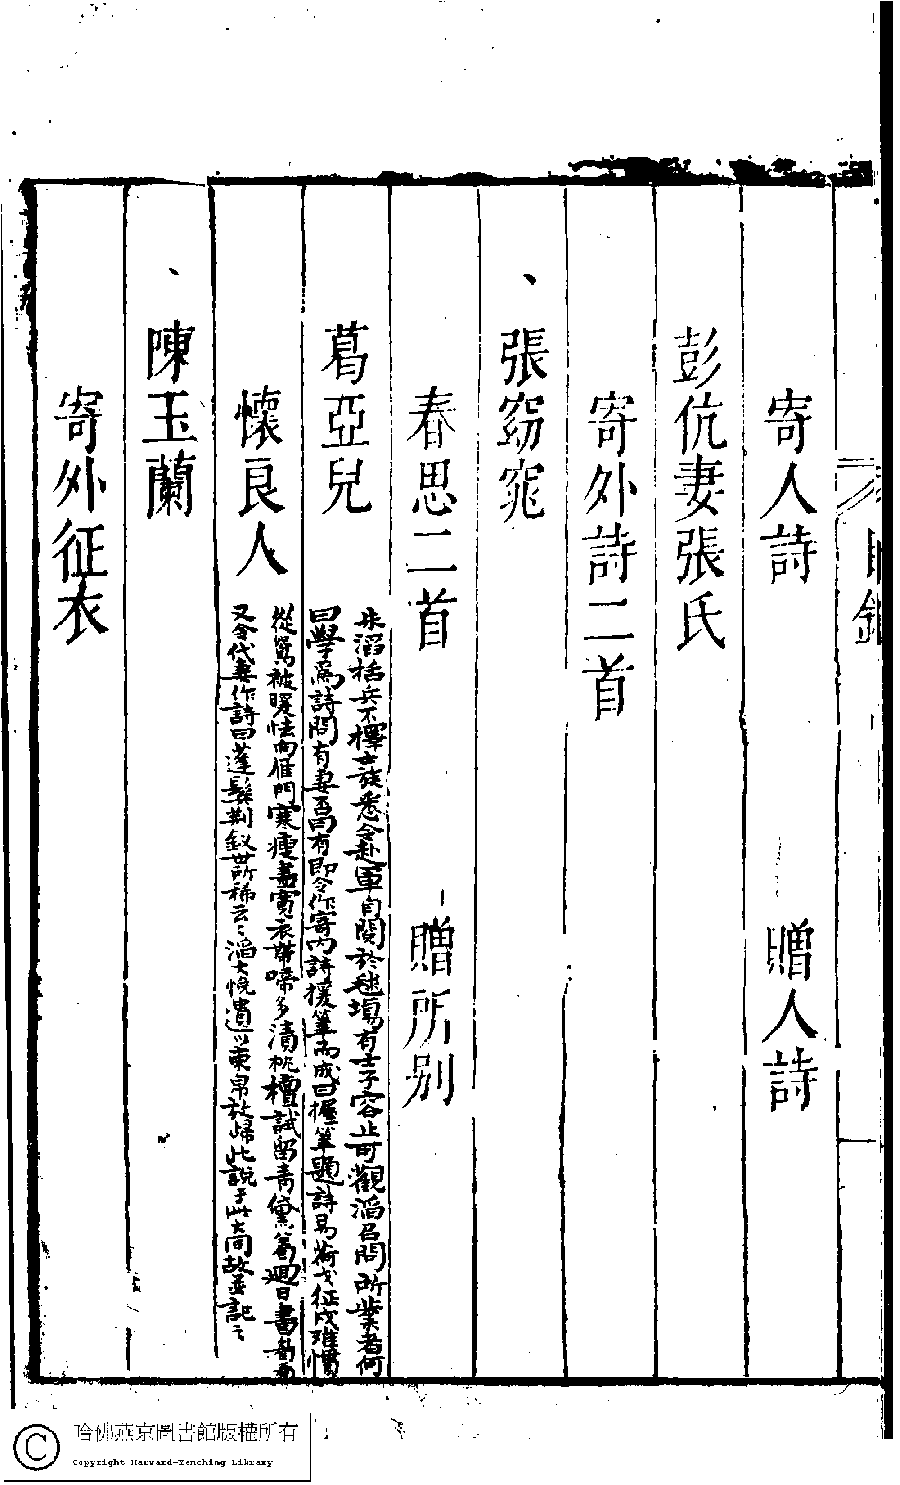 目錄
寄人詩 贈人詩
彭伉妻張氏
寄外詩二首
、張窈窕
春思二首 贈所別
葛亞兒
懷良人
朱滔括兵不擇士族悉令赴軍自閱於毬塲有士子容止可觀滔召問所業者何
曰學爲詩問有妻否曰有即令作寄內詩援筆而成曰握筆題詩易荷戈征戍難慣
從鴛被暖怯向雁門寒瘦盡寬衣帶啼多漬枕檀試留青黛着迴日畫眉看
又令代妻作詩曰蓬鬓荆釵世所稀云〻滔大悅遺以束帛放歸此說于此大同故並記之
、陳玉蘭
寄外征衣
哈佛燕京圖書館版權所有
Copyright Harvard-Yenching Library